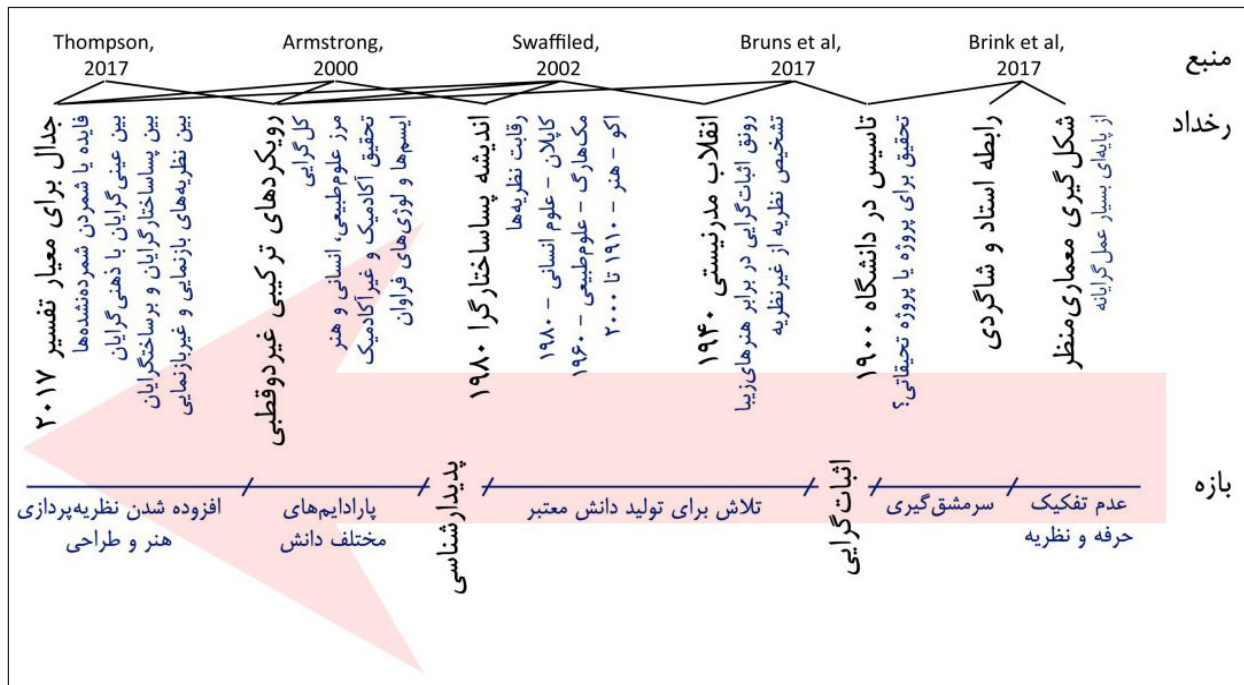 Thompson,
2017
Armstrong,
2000
Swaffiled,
2002
Bruns et al,
2017
Brink et al,
2017
منبع
رخداد
شکل‌گیری معماری‌منظر
از پایه‌ای بسیار عمل‌گرایانه
رابطه استاد و شاگردی
تاسیس در دانشگاه ۱۹۰۰
تحقیق برای پروژه یا پروژه تحیقاتی؟
انقلاب مدرنیستی ۱۹۴۰
رونق اثبات‌گرایی در برابر هنرهای‌زیبا
تشخیص نظریه از غیرنظریه
اندیشه پساساختارگرا ۱۹۸۰
رقابت نظریه‌ها
کاپلان - علوم انسانی - ۱۹۸۰
مک‌هارگ - علوم‌طبیعی - ۱۹۶۰
اکو - هنر - ۱۹۱۰ تا ۲۰۰۰
رویکردهای ترکیبی غیردوقطبی
کل‌گرایی
مرز علوم‌طبیعی، انسانی و هنر
تحقیق آکادمیک و غیرآکادمیک
ایسم‌ها و لوژی‌های فراوان
جدال برای معیار تفسیر ۲۰۱۷
فایده یا شمردن شمرده‌نشده‌ها
بین عینی‌گرایان با ذهنی‌گرایان
بین پساساختارگرایان و برساختگرایان
بین نظریه‌های بازنمایی و غیربازنمایی
بازه
عدم تفکیک
حرفه و نظریه
سرمشق‌گیری
اثبات‌گرایی
تلاش برای تولید دانش معتبر
پدیدارشناسی
پارادایم‌های
مختلف دانش
افزوده شدن نظریه‌پردازی
هنر و طراحی